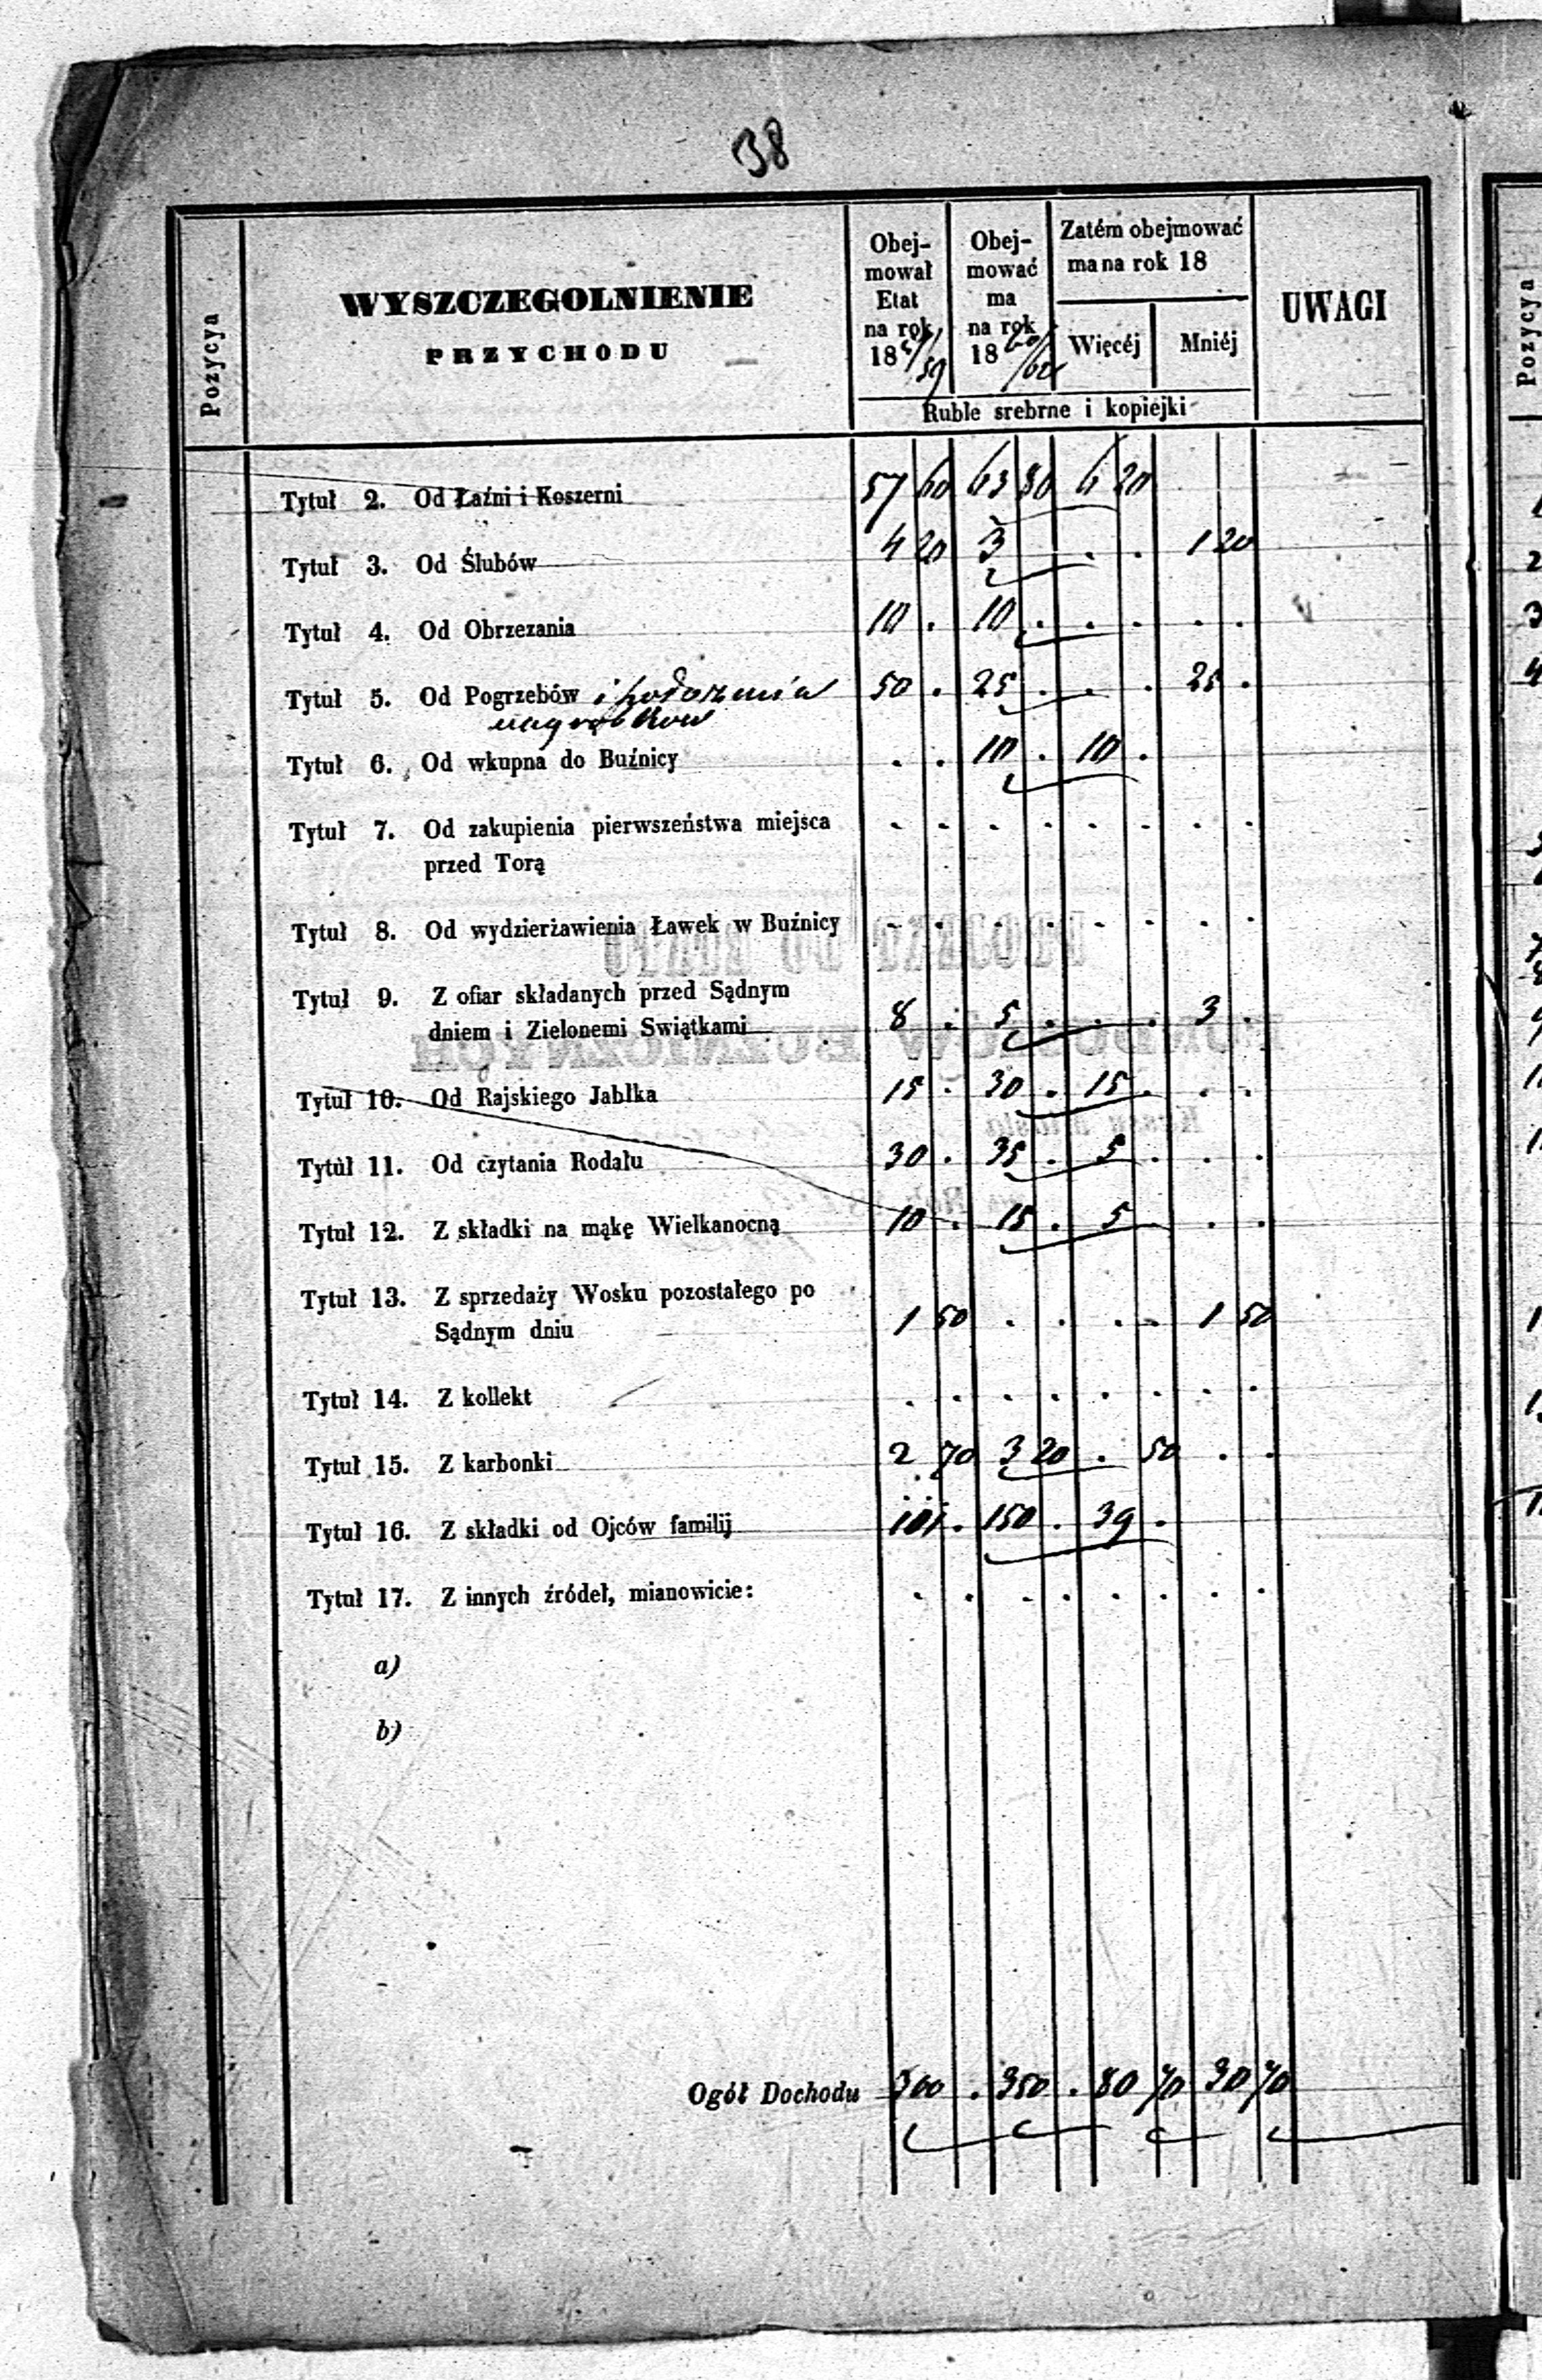 38
Pozycya
WYSZCZEGOLNIENIE
PRZYCHODU
Obej-
mował
Etat
na rok
18 /59
Obej-
mować
ma
na rok
18 60/
Zatém obejmować
ma na rok 18
Więcéj
Mniéj
Ruble srebrne i kopiejki
UWAGI
Tytuł 2. Od Łaźni i Koszerni 57 60 63 80 6 20
Tytuł 3. Od Ślubów 4 20 3 . . 1 20
Tytuł 4. Od Obrzezania 10 . 10 . . . . .
Tytuł 5. Od Pogrzebów i położenia 50 . 25 . . . 25 .
nagrobków
Tytuł 6. Od wkupna do Buźnicy . . 10 . 10 .
Tytuł 7. Od zakupienia pierwszeństwa miejsca . . . . . . . .
przed Torą
Tytuł 8. Od wydzierżawienia Ławek w Buźnicy . . . . . . . .
Tytuł 9. Z ofiar składanych przed Sądnym
dniem i Zielonemi Swiątkami 8 . 5 . . . 3 .
Tytuł 10. Od Rajskiego Jabłka 15 . 30 . 15 . . .
Tytuł 11. Od czytania Rodału 30 . 35 . 5 . . .
Tytuł 12. Z składki na mąkę Wielkanocną 10 . 15 . 5 . .
Tytuł 13. Z sprzedaży Wosku pozostałego po
Sądnym dniu 1 50 . . . . 1 50
Tytuł 14. Z kollekt . . . . . . . .
Tytuł 15. Z karbonki 2 70 3 20 . 50 . .
Tytuł 16. Z składki od Ojców familij 111 . 150 . 39 .
Tytuł 17. Z innych źródeł, mianowicie: . . . . . . . .
a)
b)
Ogół Dochodu 300 . 350 . 80 70 30 70
Pozycya